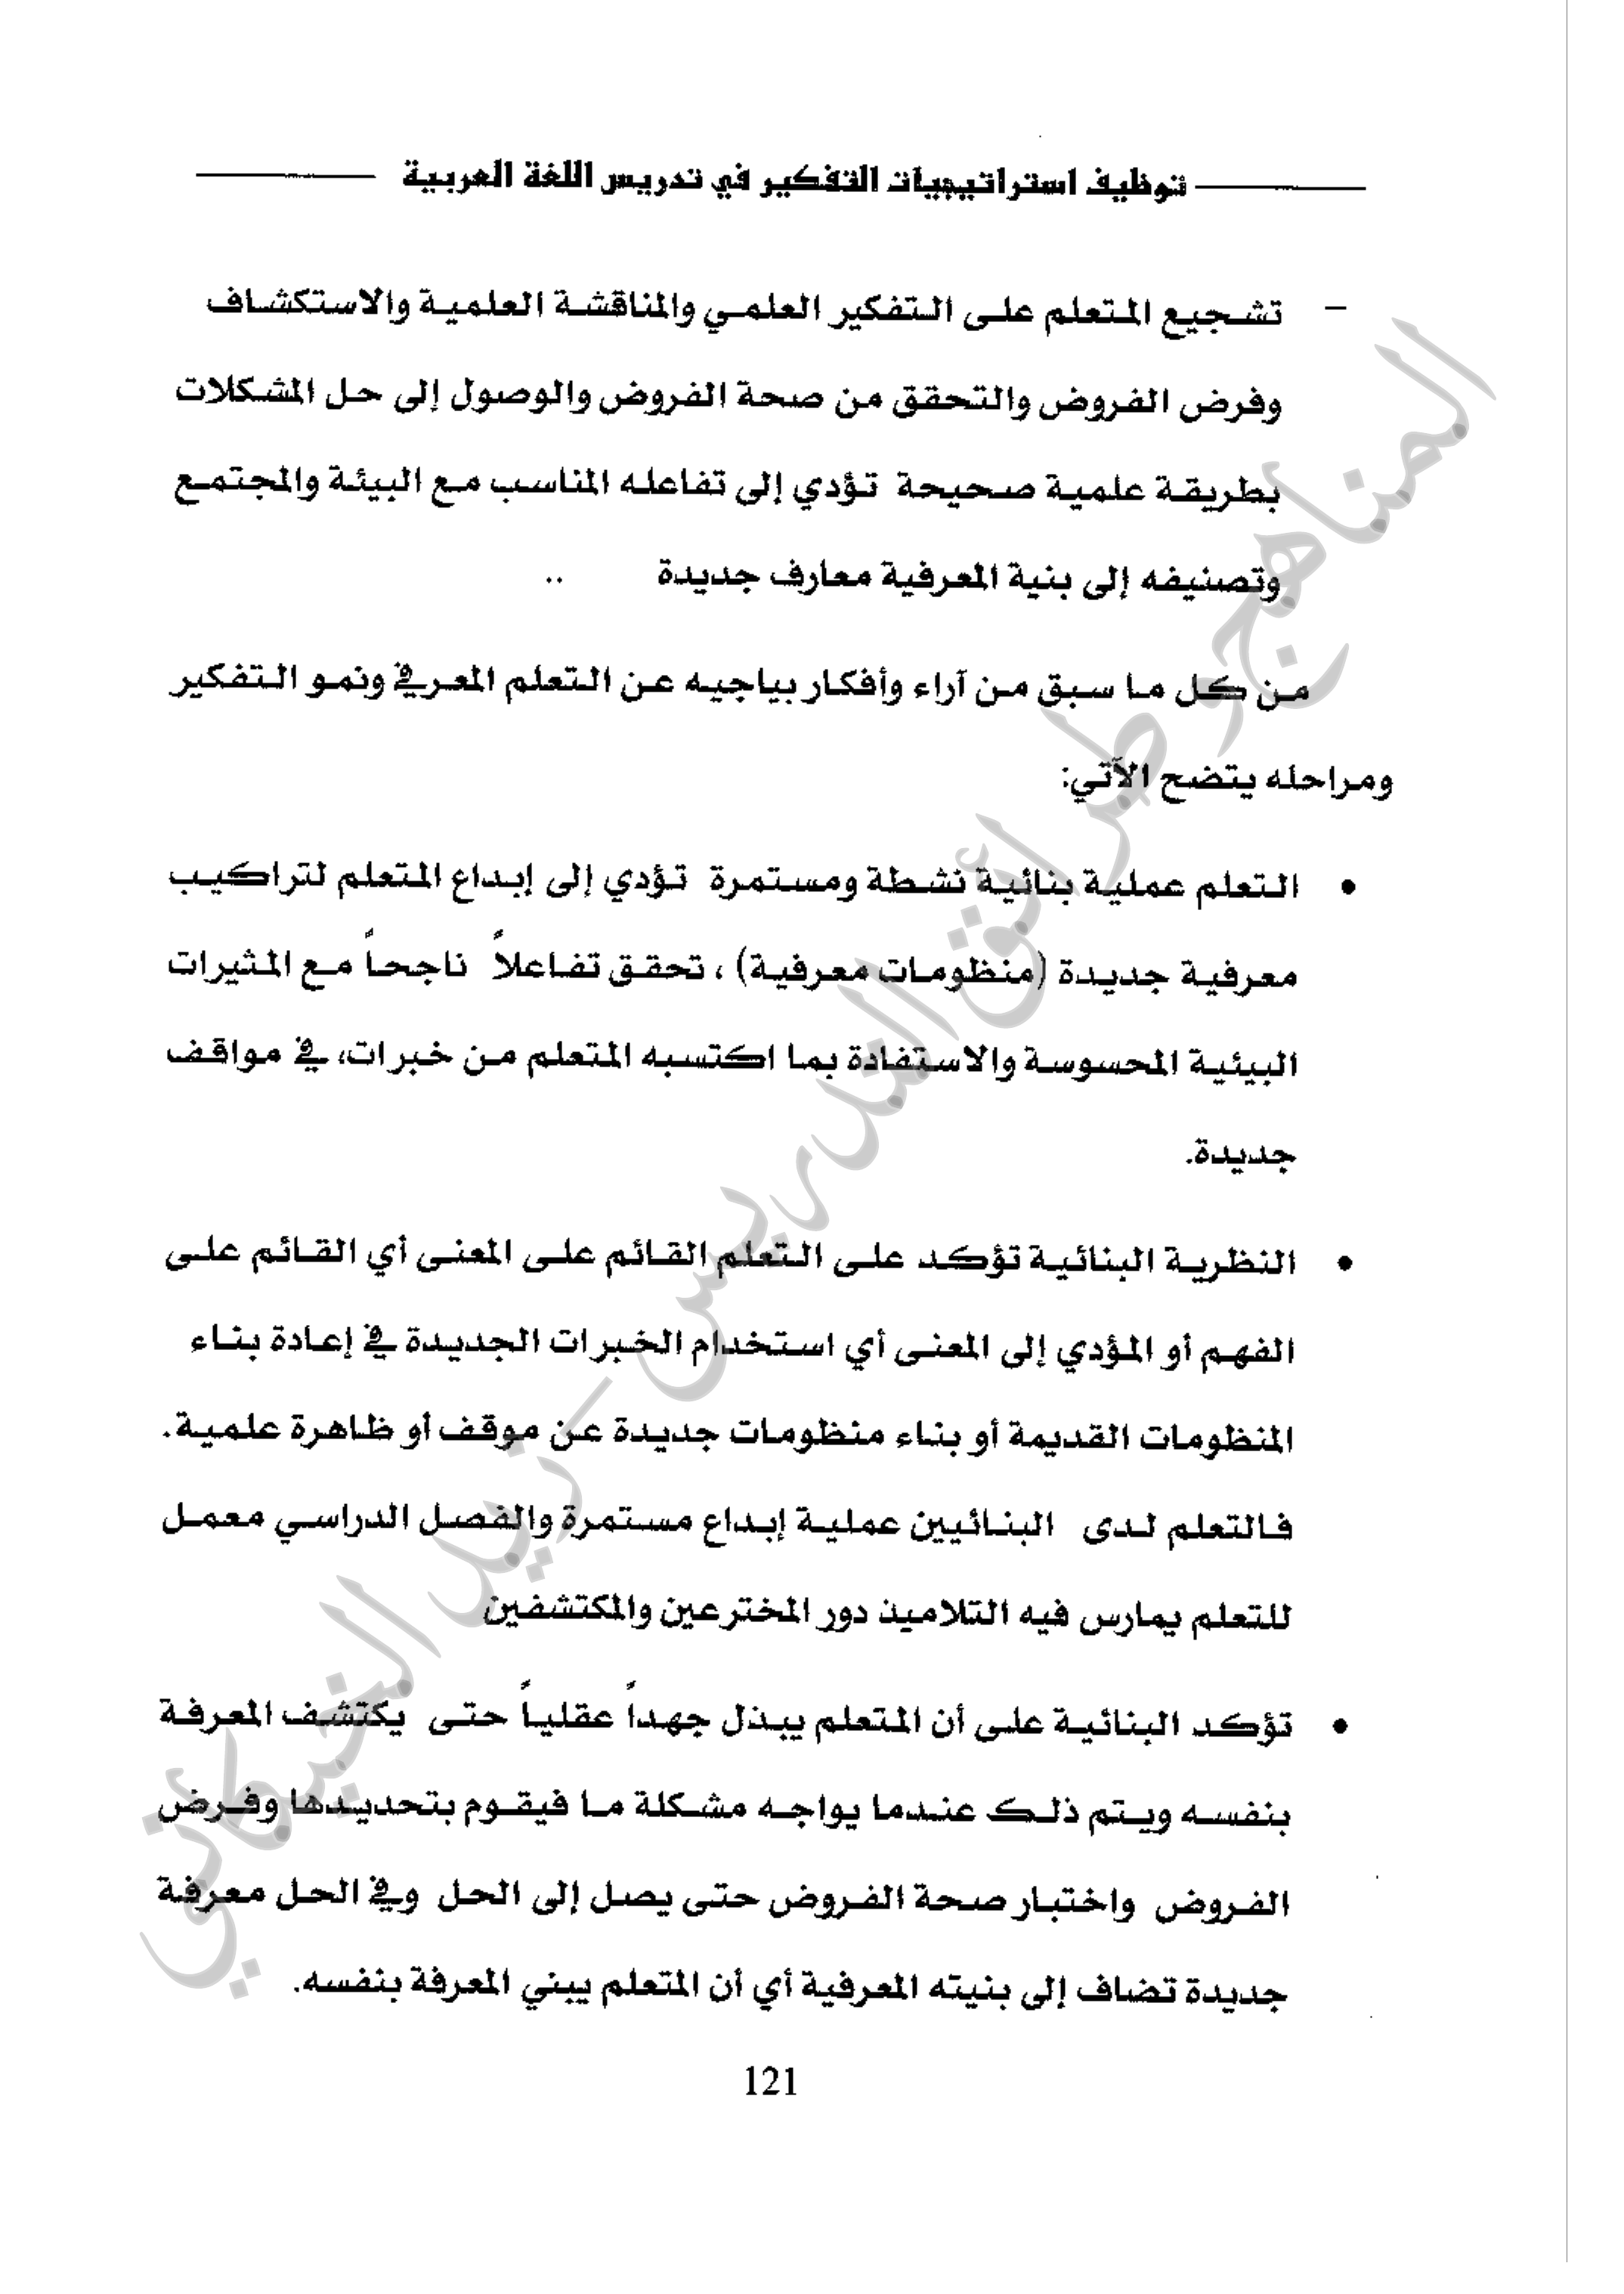 توظيف استراتيجيات التفكير في تدريس اللغة العربية
– تشجيع المتعلم على التفكير العلمي والمناقشة العلمية والاستكشاف
وفرض الفروض والتحقق من صحة الفروض والوصول إلى حل المشكلات
بطريقة علمية صحيحة تؤدي إلى تفاعله المناسب مع البيئة والمجتمع
وتصنيفه إلى بنية المعرفية معارف جديدة ..
من كل ما سبق من آراء وأفكار بياجيه عن التعلم المعرفي ونمو التفكير
ومراحله يتضح الآتي:
• التعلم عملية بنائية نشطة ومستمرة تؤدي إلى إبداع المتعلم لتراكيب
معرفية جديدة (منظومات معرفية) ، تحقق تفاعلاً ناجحاً مع المثيرات
البيئية المحسوسة والاستفادة بما اكتسبه المتعلم من خبرات، في مواقف
جديدة.
• النظرية البنائية تؤكد على التعلم القائم على المعنى أي القائم على
الفهم أو المؤدي إلى المعنى أي استخدام الخبرات الجديدة في إعادة بناء
المنظومات القديمة أو بناء منظومات جديدة عن موقف أو ظاهرة علمية.
فالتعلم لدى البنائيين عملية إبداع مستمرة والفصل الدراسي معمل
للتعلم يمارس فيه التلاميذ دور المخترعين والمكتشفين
• تؤكد البنائية على أن المتعلم يبذل جهداً عقلياً حتى يكتشف المعرفة
بنفسه ويتم ذلك عندما يواجه مشكلة ما فيقوم بتحديدها وفرض
الفروض واختبار صحة الفروض حتى يصل إلى الحل وفي الحل معرفة
جديدة تضاف إلى بنيته المعرفية أي أن المتعلم يبني المعرفة بنفسه.
121
المناهج وطرائق التدريس – زيد الخيكاني